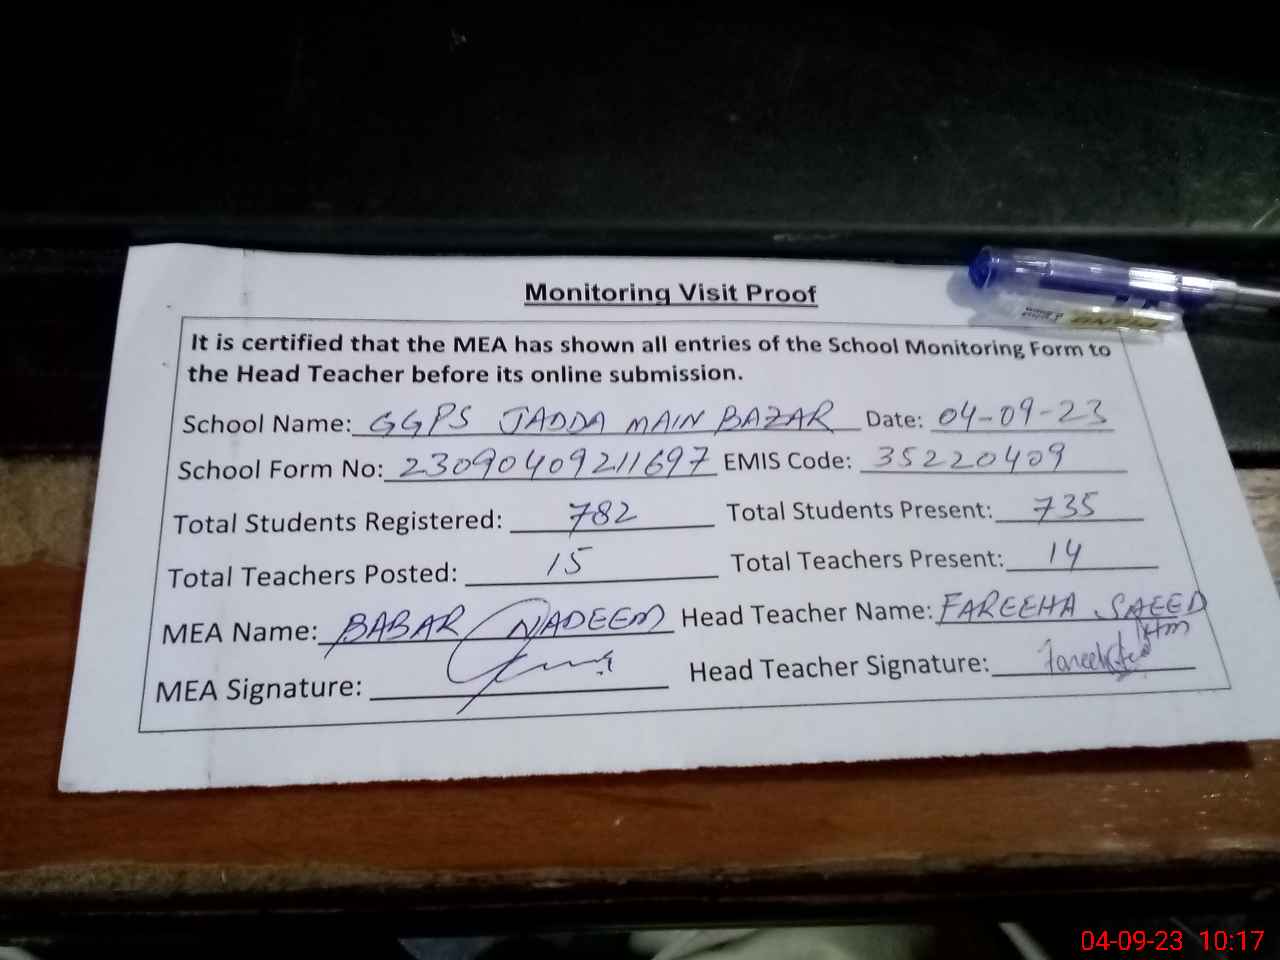 Monitoring Visit Proof
It is certified that the MEA has shown all entries of the School Monitoring Form to
the Head Teacher before its online submission.
School Name: GGPS JADDA MAIN BAZAR Date: 04-09-23
School Form No: 23090409211697 EMIS Code: 35220409
Total Students Registered: 782 Total Students Present: 735
Total Teachers Posted: 15 Total Teachers Present: 14
MEA Name: BABAR NADEEM Head Teacher Name: FAREEHA SAEED
MEA Signature: Head Teacher Signature:
04-09-23 10:17